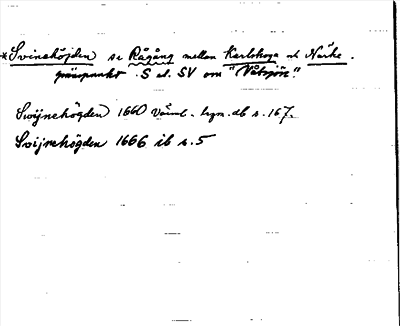 *Svinehöjden se Rågång mellan Karlskoga och Närke.
gränspunkt. S el. SV om "Våtsjön."
Swijnehögden 1660 Värml. hrgm. db s. 167.
Svijnehögden 1666 ib s. 5